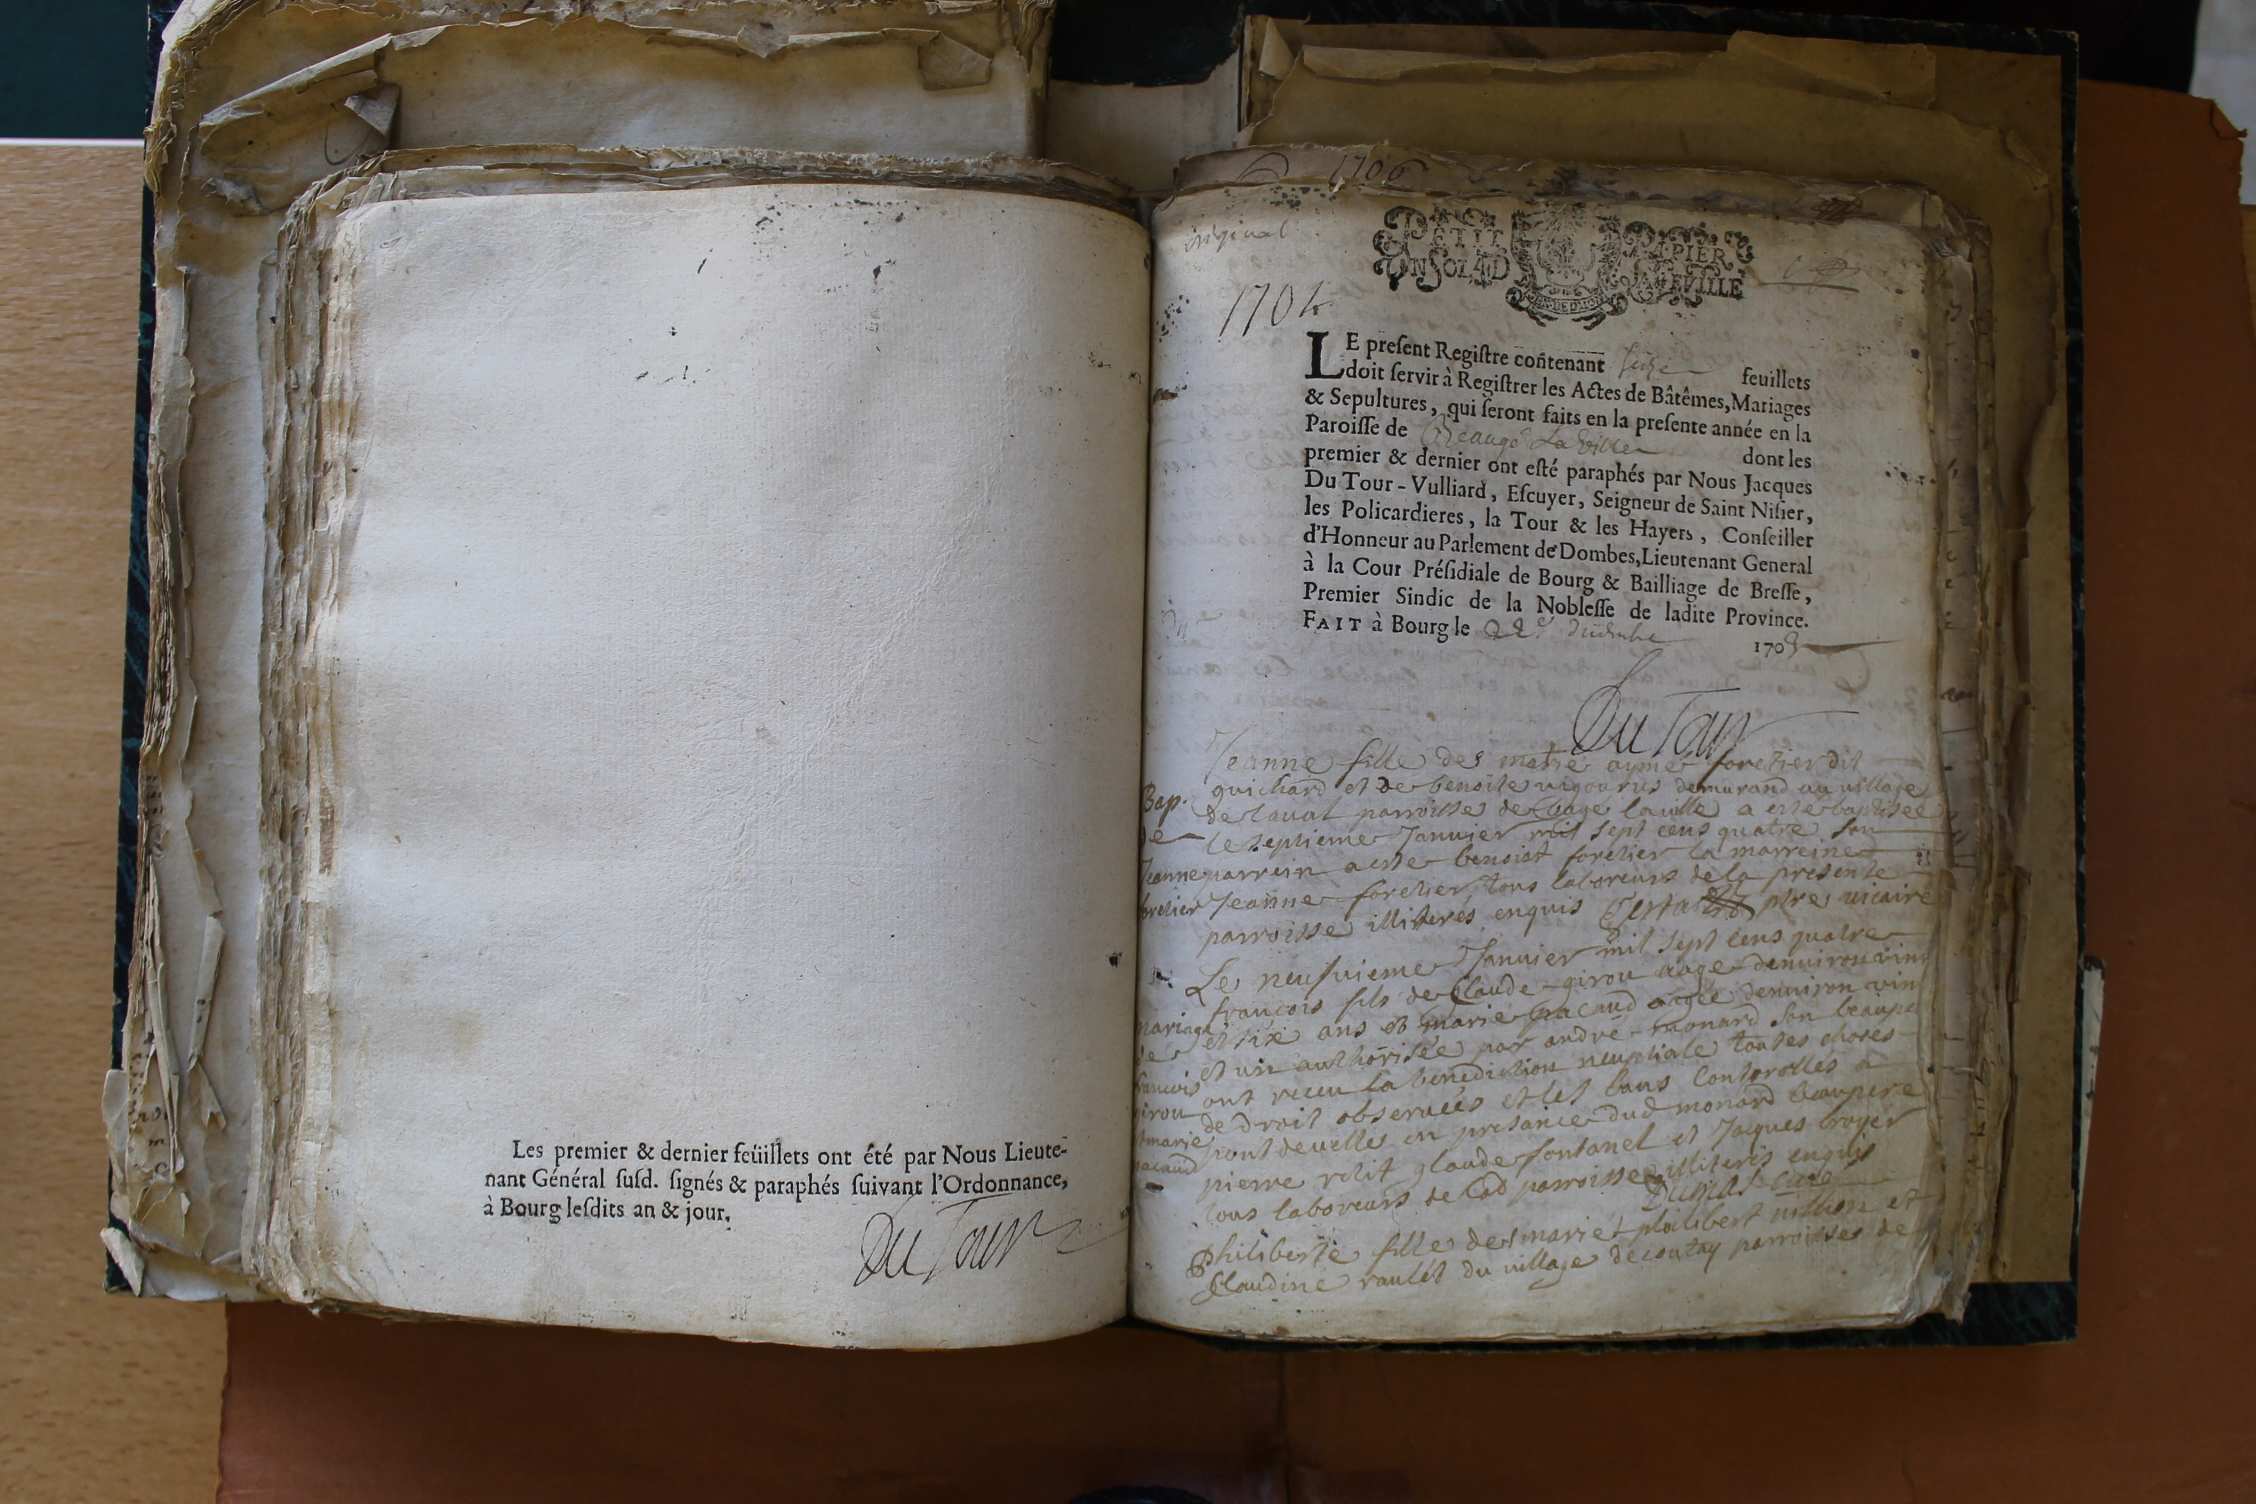 Les premier & dernier feüillets ont été par Nous Lieute-
nant Général susd. signés & paraphés suivant l'Ordonnance,
à Bourg lesdits an & jour.
Du Tour
1706
original
PETIT PAPIER
UN SOL 4 D LA FEVILLE
1704
LE present Registre contenant seize feuillets
doit servir à Registrer les Actes de Bâtêmes, Mariages
& Sepultures, qui seront faits en la presente année en la
Paroisse de Beaugé La Ville dont les
premier & dernier ont esté paraphés par Nous Jacques
Du Tour-Vulliard, Escuyer, Seigneur de Saint Nisier,
les Policardieres, la Tour & les Hayers, Conseiller
d'Honneur au Parlement de Dombes, Lieutenant General
à la Cour Présidiale de Bourg & Bailliage de Bresse,
Premier Sindic de la Noblesse de ladite Province.
FAIT à Bourg le 22e decembre 1703
Du Tour
Bap.
de
Jeanne
foretier
Jeanne fille des mariés aymé foretier dit
guichard et de benoite vigourus demurand au village
de laval parroisse de Bage laville a este baptisée
le septieme Janvier mil sept cens quatre son
parrein a este benoist foretier la marreine
Jeanne foretier tous laboreurs de la presente
parroisse illiterés enquis ptre vicaire
mariage
de
francois
girou
et marie
pacaud
Le neufvieme Janvier mil sept cens quatre
francois fils de Claude girou aagé denviron vin
et six ans et marie pacaud agée denviron vin
et un authorisée par andré monard son beaupe
ont receu la benediction neuptiale toutes choses
de droit observées et les bans Controllés a
pont develle en presance dud monard beaupere
pierre glaude fontanel et Jacques broyer
tous laboreurs de lad parroisse illiteris enquis
Dumas curé
Philiberte fille des mariés philibert et
Claudine raulet du village decoutay parroisses de